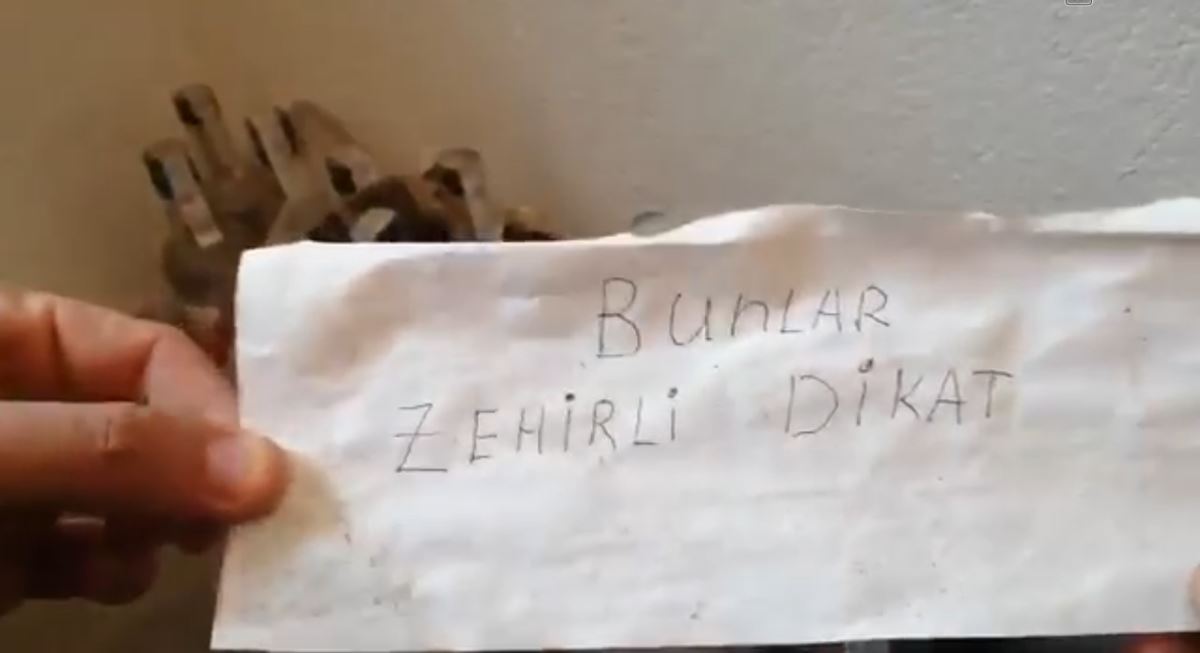 BunLAR
ZEHİRLİ DİKAT